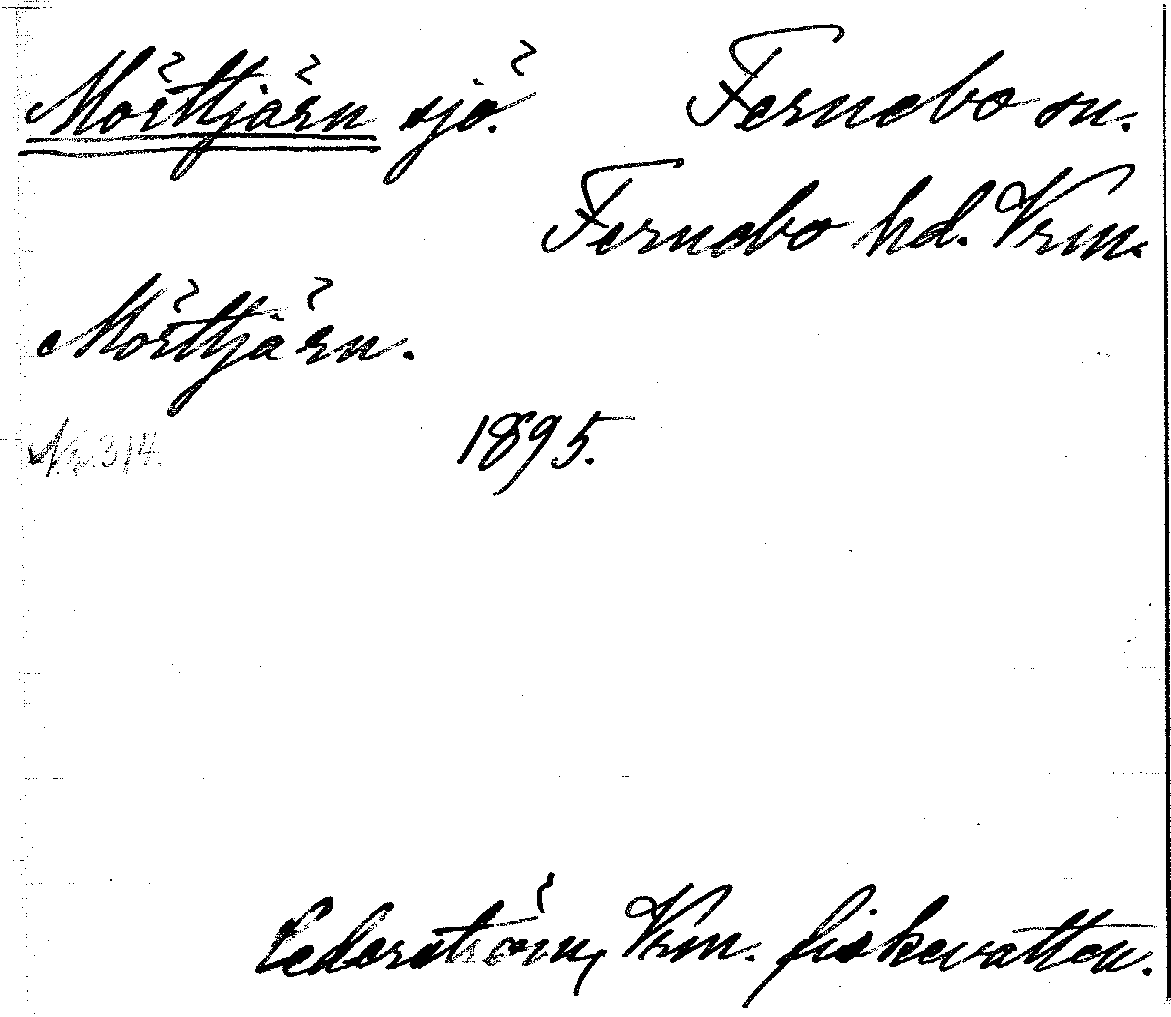 Mörttjärn sjö. Fernebo sn.
Fernebo hd. Vrm.
Mörttjärn.
Nr. 314. 1895.
Cederström, Vrm. fiskevatten.